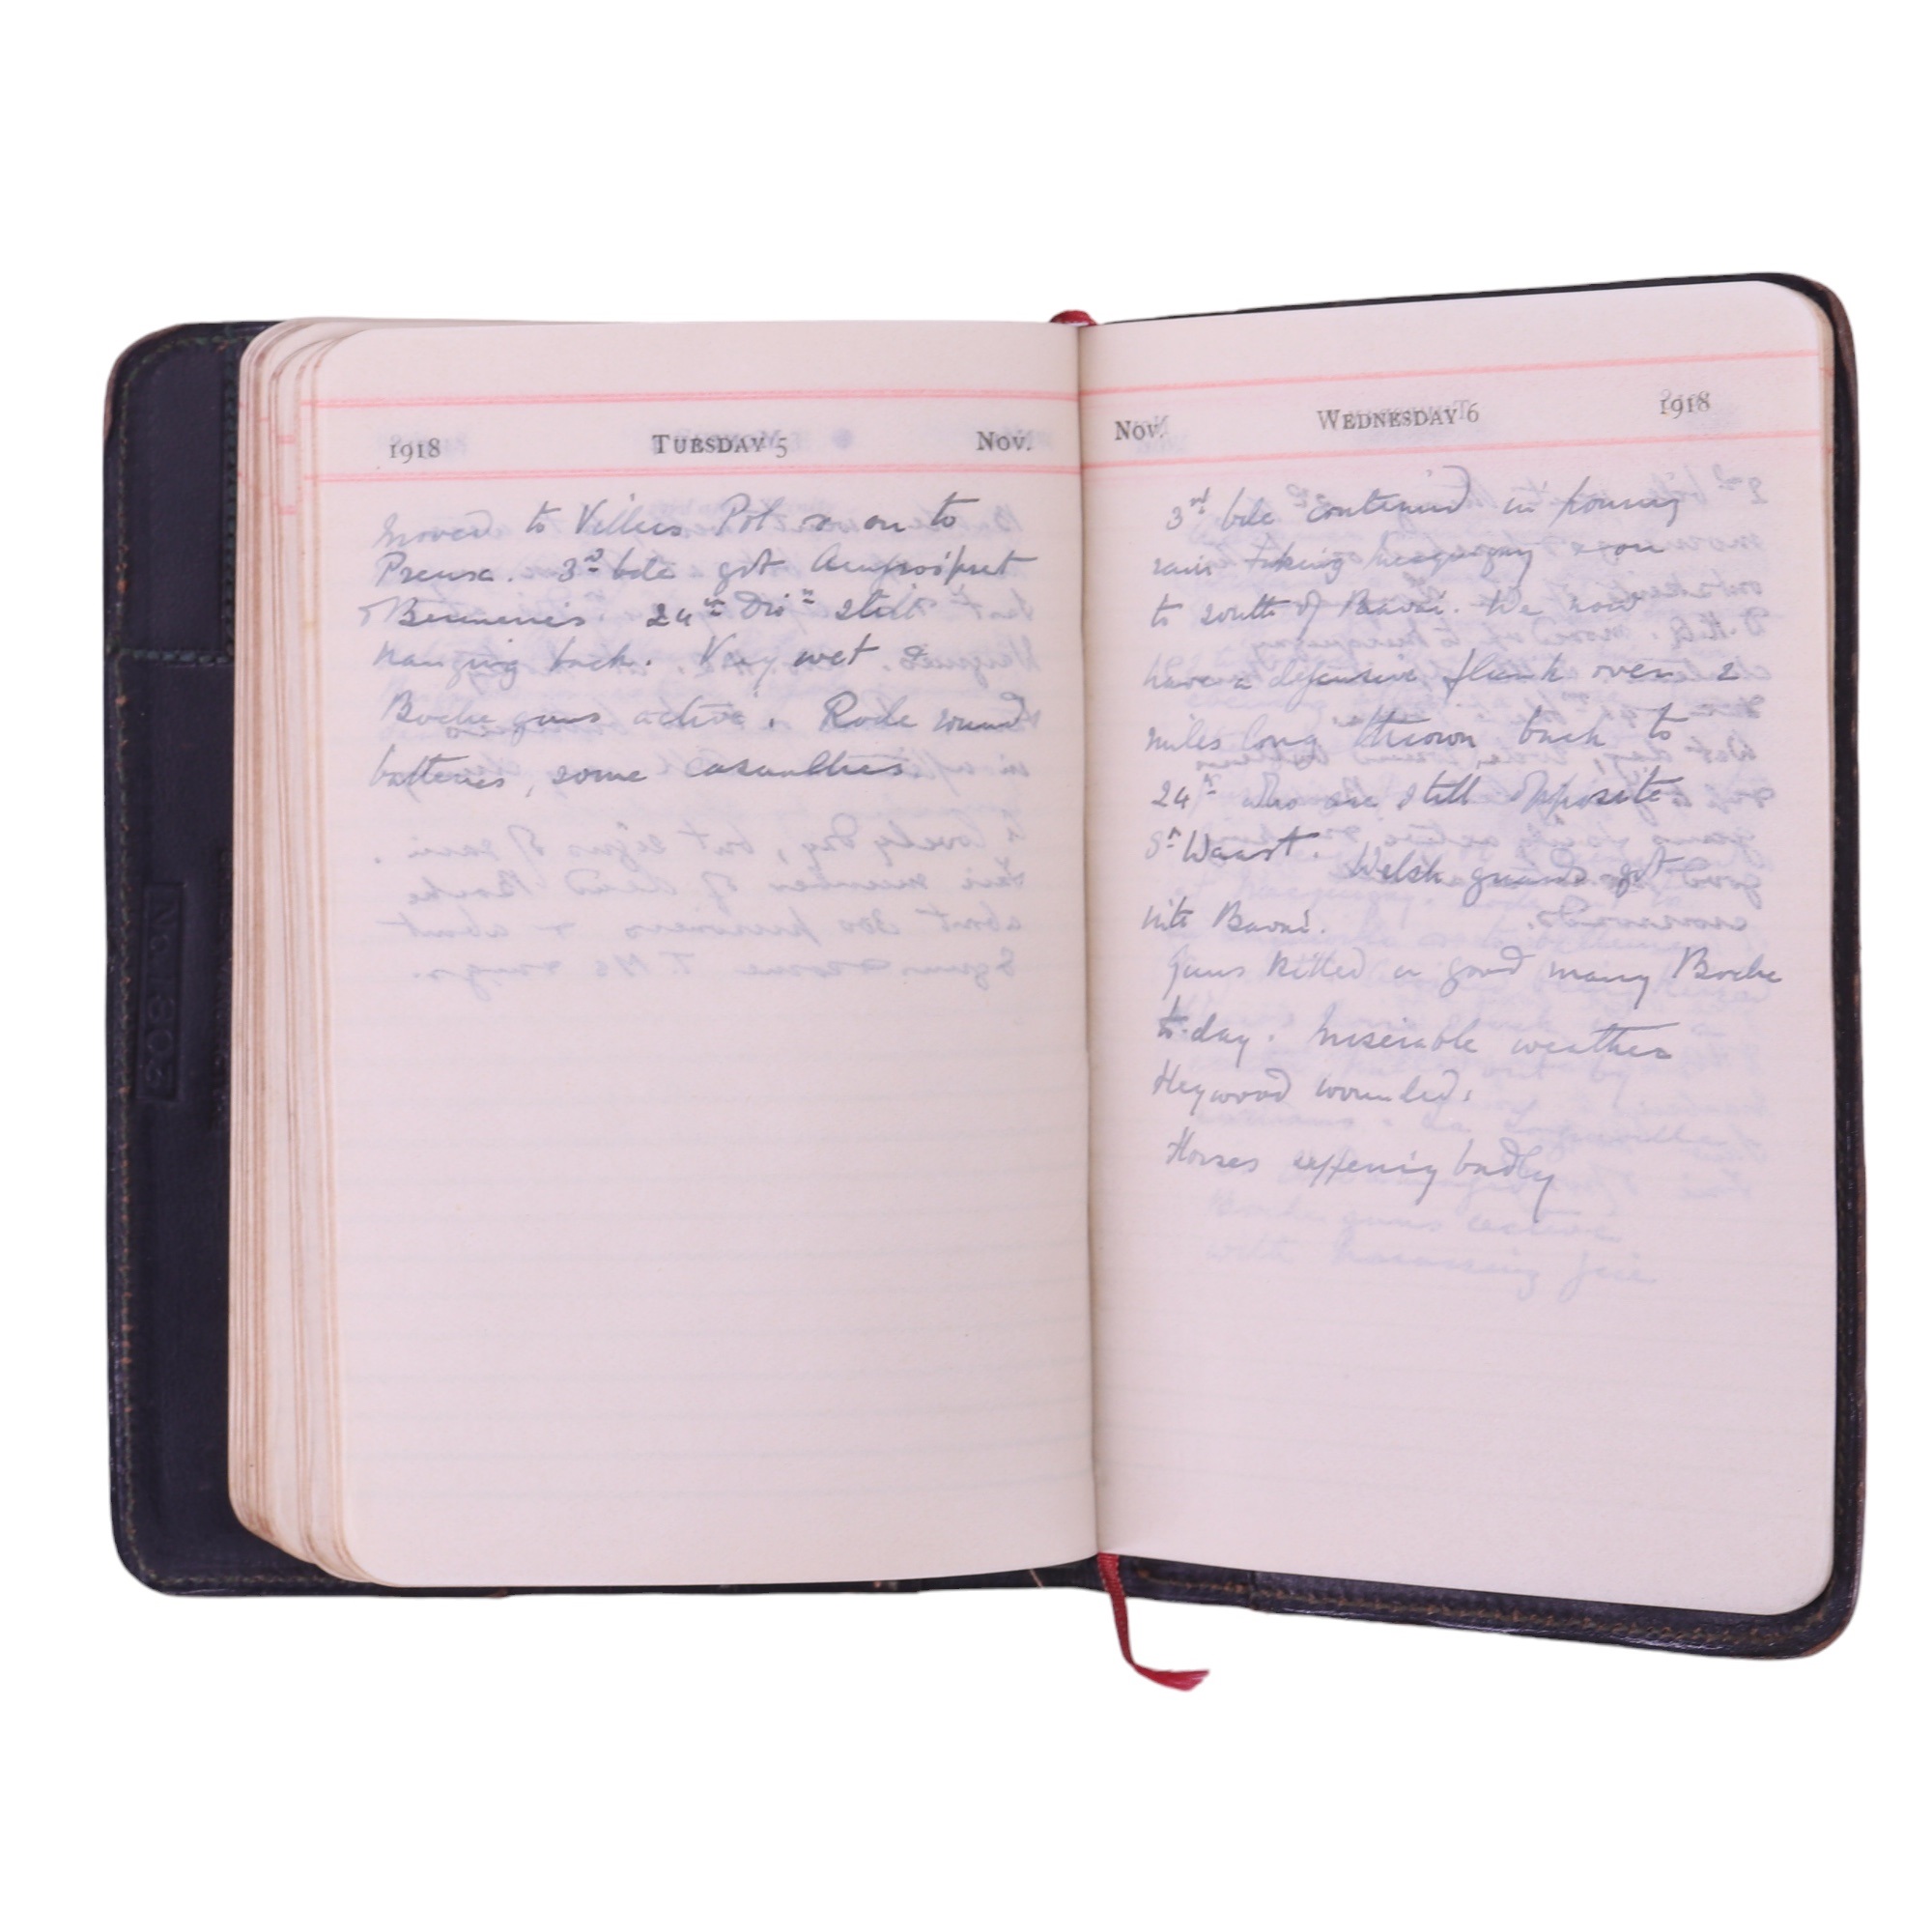 1918 TUESDAY 5 Nov.
Moved to Villers Pol & on to
Preux. 3rd bde got Amfroipret
& Bermeries 24th Divn still
hanging back. Very wet &
Boche guns active. Rode round
batteries, some casualties
Nov. WEDNESDAY 6 1918
3rd bde continued in pouring
rain taking Mecquigny & on
to south of Bavai. We now
have a defensive flank over 2
miles long thrown back to
24th who are still opposite
St Waast. Welsh guards got
into Bavai.
Guns killed a good many Boche
to-day. Miserable weather
Heywood wounded.
Horses suffering badly